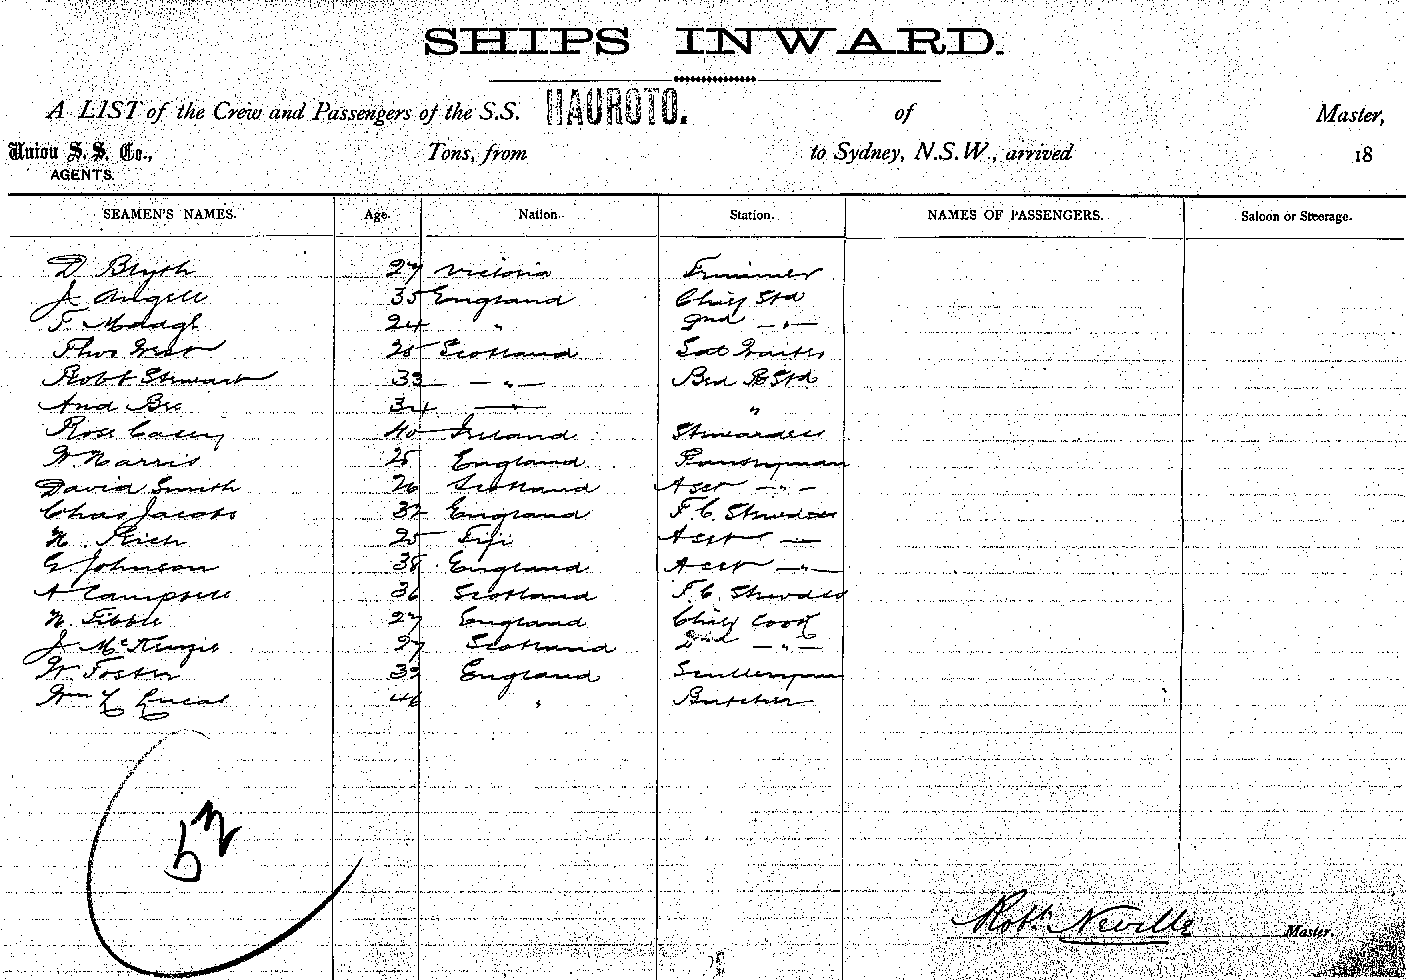 SHIPS INWARD.
A LIST of the Crew and Passengers of the S.S. HAUROTO. of Master,
Union S. S. Co., Tons, from to Sydney, N.S.W., arrived 18
AGENTS.
SEAMEN'S NAMES. Age. Nation. Station. NAMES OF PASSENGERS. Saloon or Steerage.
D Blyth 27 Victoria Trimmer
J. Angell 35 England Chief Std
T. 24 " 2nd — " —
Thos West 25 Scotland Sal Waiter
Robt Stewart 33 — " — Bed R Std
And Bee 34 — " — "
Rose Casey 40 Ireland Stewardess
W. Harris 25 England Pantryman
David Smith 26 Scotland Asst — " —
Chas Jacobs 32 England F. C. Stewdess
N. Rich 25 Fiji Asst —
G. Johnson 38 England Asst — " —
A Campbell 36 Scotland F. C. Stewdess
N. Tibble 27 England Chief Cook
J. McKenzie 27 Scotland 2nd — " —
W. Foster 39 England Sculleryman
Wm L Lucas 46 " Butcher
52
Robt. Neville Master.